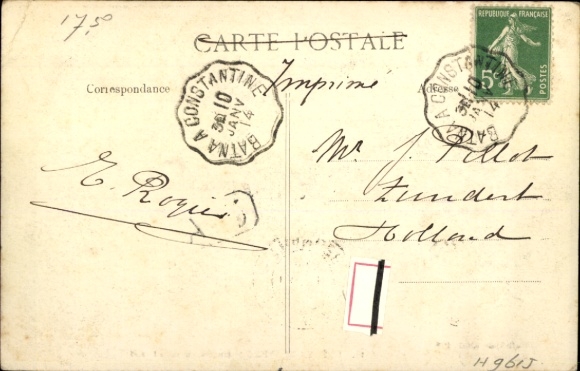 17 50
CARTE POSTALE
Correspondance
Imprimé
Adresse
REPUBLIQUE FRANÇAISE
5c
POSTES
BATNA A CONSTANTINE
3E
10
JANV
14
BATNA A CONSTANTINE
3E
10
JANV
14
Mr J. Pillot
Zundert
Holland
E. Rogier
H 9615